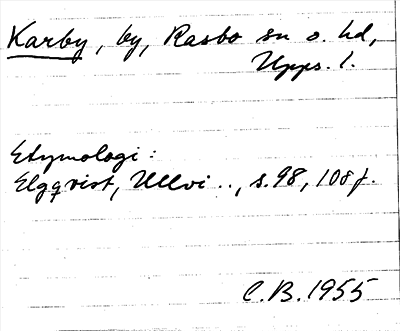 Karby, by, Rasbo sn o. hd,
Upps. l.
Etymologi:
Elgqvist, Ullvi .., s. 98, 108 f.
C.B. 1955